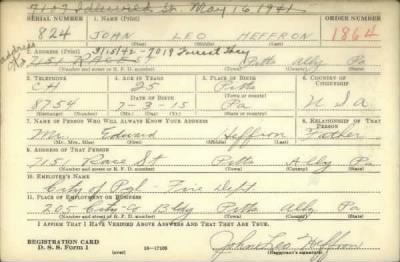 May 16 1941
SERIAL NUMBER 1. NAME (Print) ORDER NUMBER
824 JOHN LEO HEFFRON 1864
address
2. ADDRESS (Print) 3/15/42 - 7019
7151 Pitts Alby Pa
(Number and street or R. F. D. number) (Town) (County) (State)
3. TELEPHONE 4. AGE IN YEARS 5. PLACE OF BIRTH 6. COUNTRY OF CITIZENSHIP
CH 25 Pitts
DATE OF BIRTH (Town or county)
8754 7-3-15 Pa U S A
(Exchange) (Number) (Mo.) (Day) (Yr.) (State or country)
7. NAME OF PERSON WHO WILL ALWAYS KNOW YOUR ADDRESS 8. RELATIONSHIP OF THAT PERSON
Mr. Edward Heffron Father
(Mr., Mrs., Miss) (First) (Middle) (Last)
9. ADDRESS OF THAT PERSON
7151 Race St Pitts Alby Pa
(Number and street or R. F. D. number) (Town) (County) (State)
10. EMPLOYER'S NAME
City of Pgh - Fire Dept.
11. PLACE OF EMPLOYMENT OR BUSINESS
205 City-Co Bldg Pitts Alby Pa
(Number and street or R. F. D. number) (Town) (County) (State)
I AFFIRM THAT I HAVE VERIFIED ABOVE ANSWERS AND THAT THEY ARE TRUE.
REGISTRATION CARD
D. S. S. Form 1 (over) 16-17105 John Leo Heffron
(Registrant's signature)